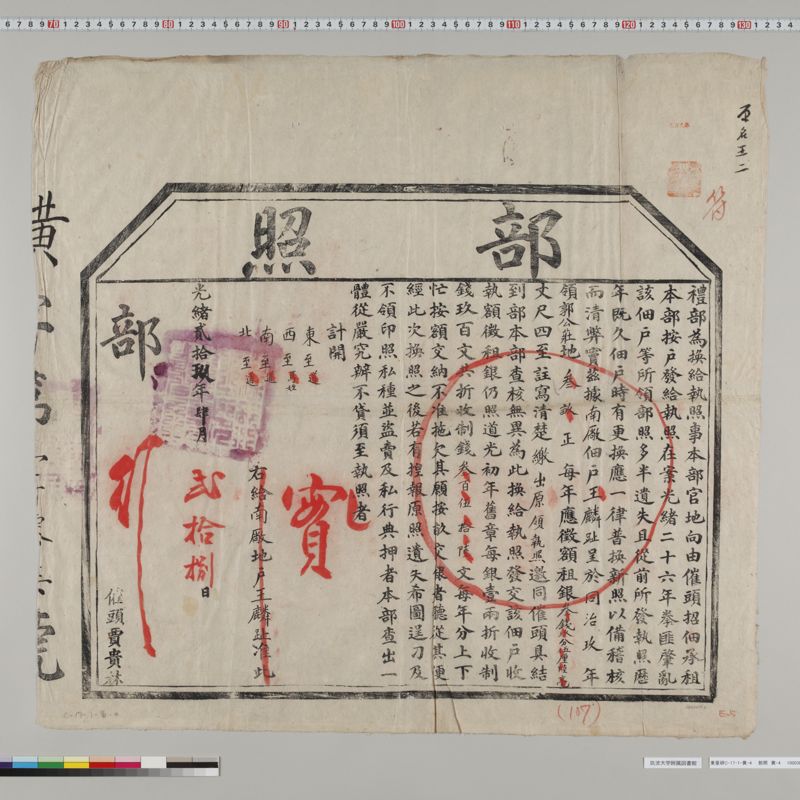 原名王二
符
部照
禮部為換給執照事本部官地向由催頭招佃承租
本部按戶發給執照在案光緒二十六年拳匪肇亂
該佃戶等所領部照多半遺失且從前所發執照歷
年既久佃戶時有更換應一律普換新照以備稽核
而清弊竇茲據南廠佃戶王麟趾呈於同治玖年
領郭公莊地叁畝 正 每年應徵額租銀叁錢
丈尺四至註寫清楚繳出原領執照邀同催頭具結
到部本部查核無異為此換給執照發交該佃戶收
執額徵租銀仍照道光初年舊章每銀壹兩折收制
錢玖百文共折收制錢叁百伍拾陸文每年分上下
忙按額交納不准拖欠其願按畝交銀者聽從其便
經此次換照之後若有控報原照遺失希圖逞刁及
不領印照私種並盜賣及私行典押者本部查出一
體從嚴究辦不貸須至執照者
計開
東至道
西至
南至道
北至道
實
右給南廠地戶王麟趾准此
光緒貳拾玖年肆月 弍拾捌日
部
行
催頭賈貴林
(107)
E-5
筑波大学附属図書館